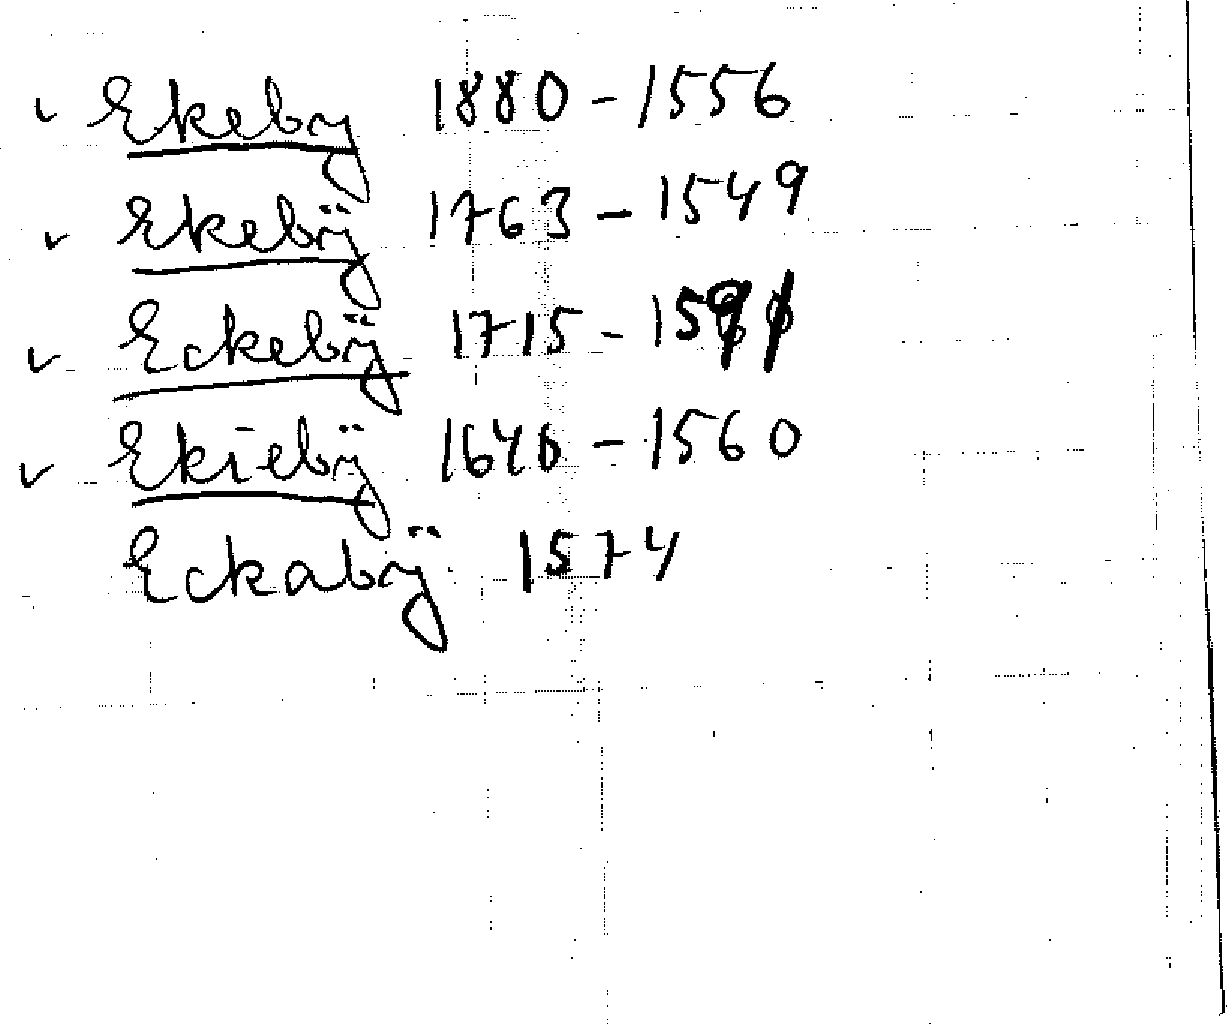 ✓ Ekeby 1880 - 1556
✓ Ekebÿ 1763 - 1549
✓ Eckebÿ 1715 -
✓ Ekiebÿ 1646 - 1560
Eckabÿ 1574